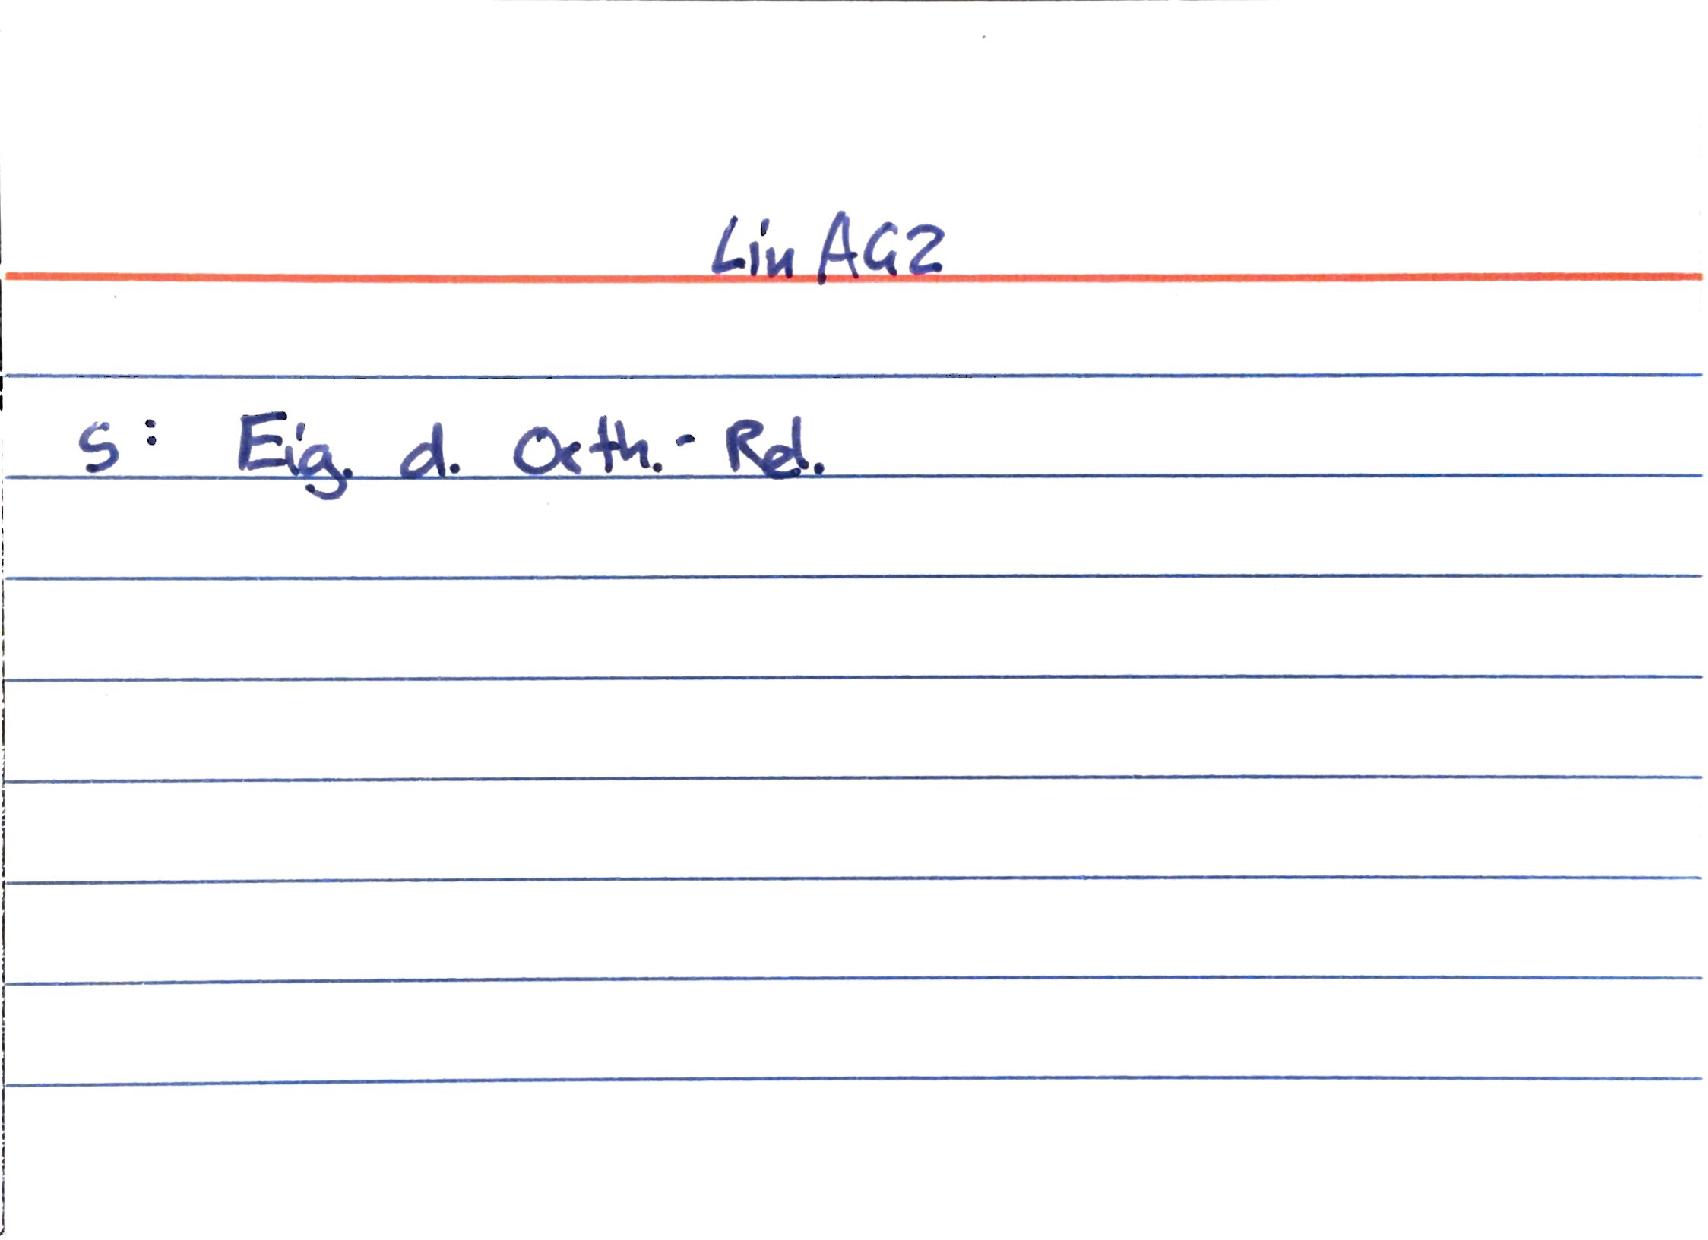 Lin AG2
S: Eig. d. Orth.-Rel.